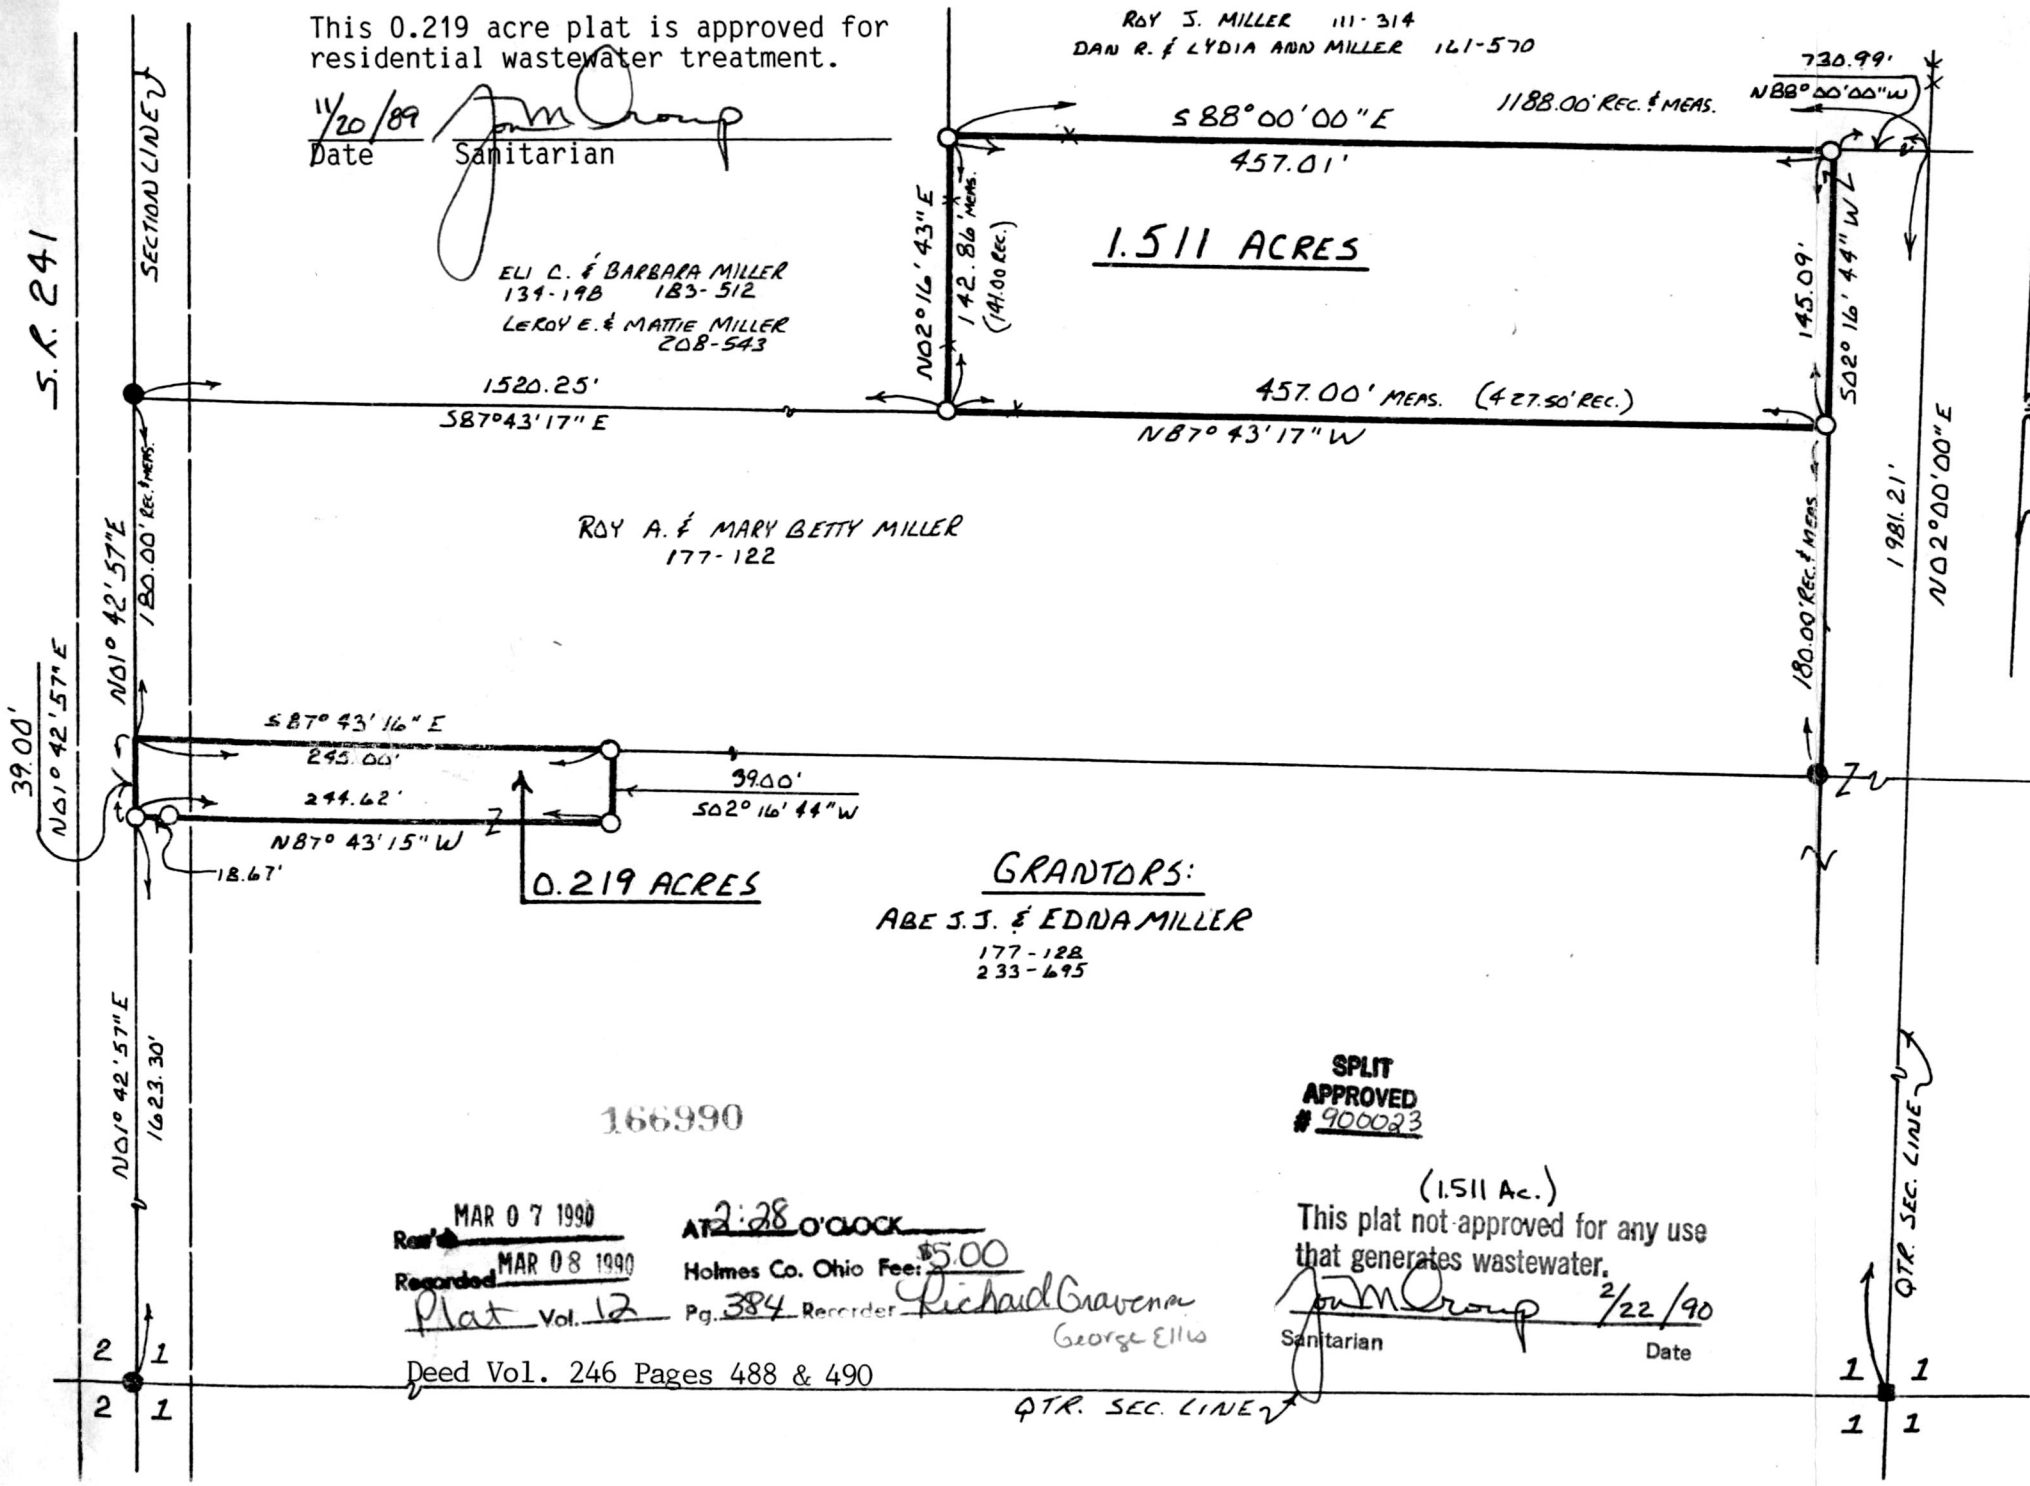 This 0.219 acre plat is approved for
residential wastewater treatment.
11/20/89
Date Sanitarian
ROY J. MILLER 111-314
DAN R. & LYDIA ANN MILLER 161-570
730.99'
N88°00'00"W
1188.00' REC. & MEAS.
S88°00'00"E
457.01'
SECTION LINE
S.R. 241
N02°16'43"E
142.86' MEAS.
(141.00 REC.)
1.511 ACRES
145.09'
S02°16'44"W
ELI C. & BARBARA MILLER
134-198 183-512
LEROY E. & MATTIE MILLER
208-543
1520.25'
S87°43'17"E
457.00' MEAS. (427.50' REC.)
N87°43'17"W
N01°42'57"E
180.00' REC. & MEAS.
ROY A. & MARY BETTY MILLER
177-122
180.00' REC. & MEAS.
1981.21'
N02°00'00"E
39.00'
N01°42'57"E
S87°43'16"E
245.00'
244.62'
N87°43'15"W
18.67'
39.00'
S02°16'44"W
0.219 ACRES
GRANTORS:
ABE J.J. & EDNA MILLER
177-128
233-695
N01°42'57"E
1623.30'
166990
SPLIT
APPROVED
# 900023
QTR. SEC. LINE
(1.511 Ac.)
This plat not approved for any use
that generates wastewater.
2/22/90
Sanitarian Date
Rec'd MAR 07 1990 AT 2:28 O'CLOCK
Recorded MAR 08 1990 Holmes Co. Ohio Fee: $5.00
Plat Vol. 12 Pg. 384 Recorder Richard Graven
George Ellis
Deed Vol. 246 Pages 488 & 490
QTR. SEC. LINE
2 1
2 1
1 1
1 1